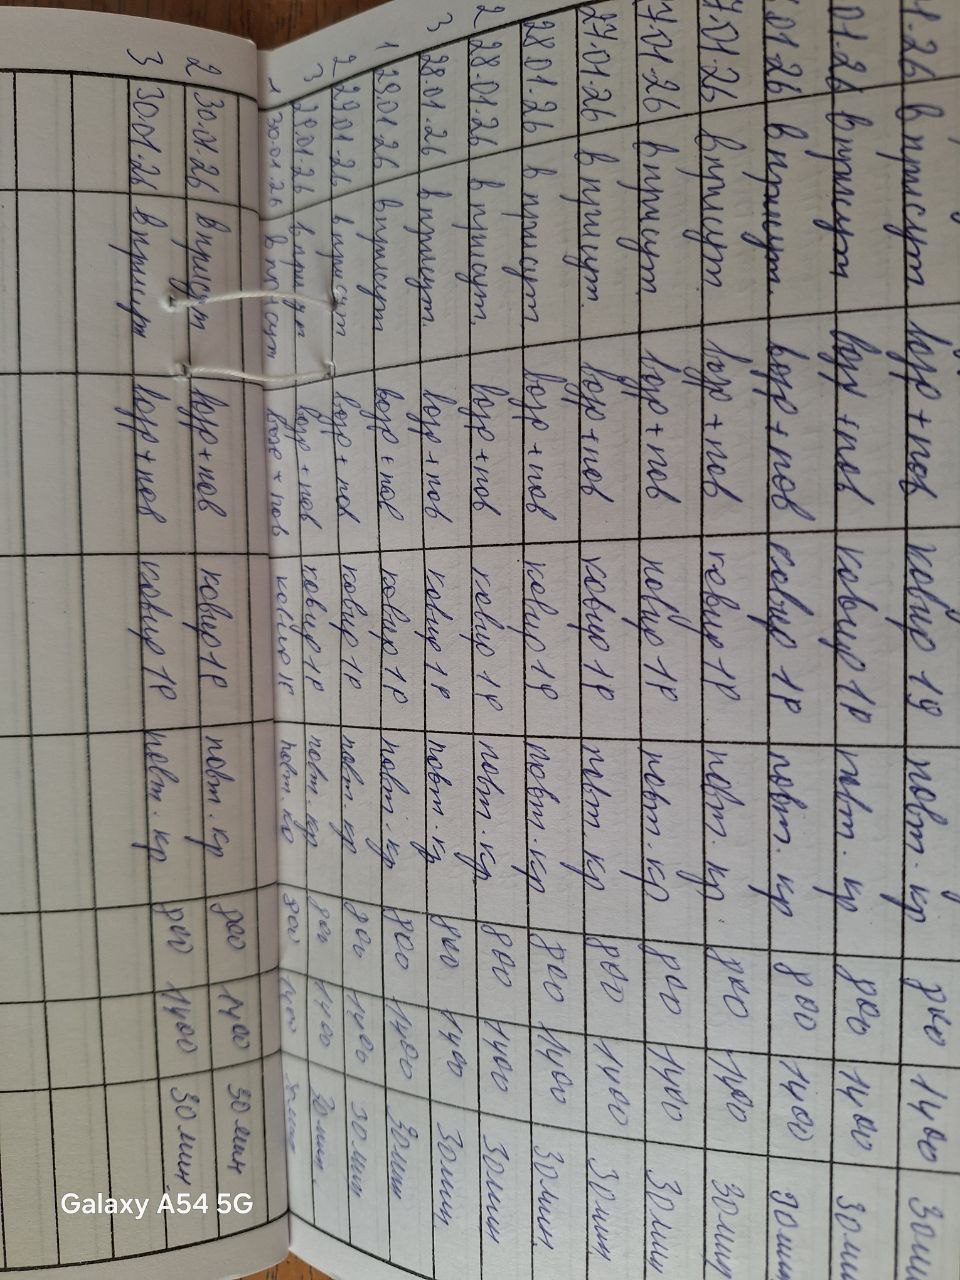 01.26 в присут возр + пов ковир 1р повт. кр 800 1400 30мин
01.26 в присут возр + пов ковир 1р повт. кр 800 1400 30ми
.01.26 в присут. возр + пов ковир 1р повт. кр 800 1400 30мин
7.01.26 в присут возр + пов ковир 1р повт. кр 800 1400 30мин
7.01.26 в присут. возр + пов ковир 1р повт. кр 800 1400 30мин
27.01.26 в присут. возр + пов ковир 1р повт. кр 800 1400 30мин
28.01.26 в присут. возр + пов ковир 1р повт. кр 800 1400 30мин.
2 28.01.26 в присут. возр + пов ковир 1р повт. кр. 800 1400 30мин
3 28.01.26 в присут. возр + пов ковир 1р повт. кр 800 1400 30мин
1 29.01.26 в присут возр + пов ковир 1р повт. кр 800 1400 30мин
2 29.01.26 в присут возр + пов ковир 1р повт. кр 800 1400 30мин
3 29.01.26 в присут возр + пов ковир 1р повт. кр 800 1400 30мин.
1 30.01.26 в присут возр + пов ковир 1р повт. кр 800 1400
2 30.01.26 в присут возр + пов ковир 1р повт. кр 800 1400 30мин
3 30.01.26 в присут возр + пов ковир 1р повт. кр 800 1400 30мин.
Galaxy A54 5G